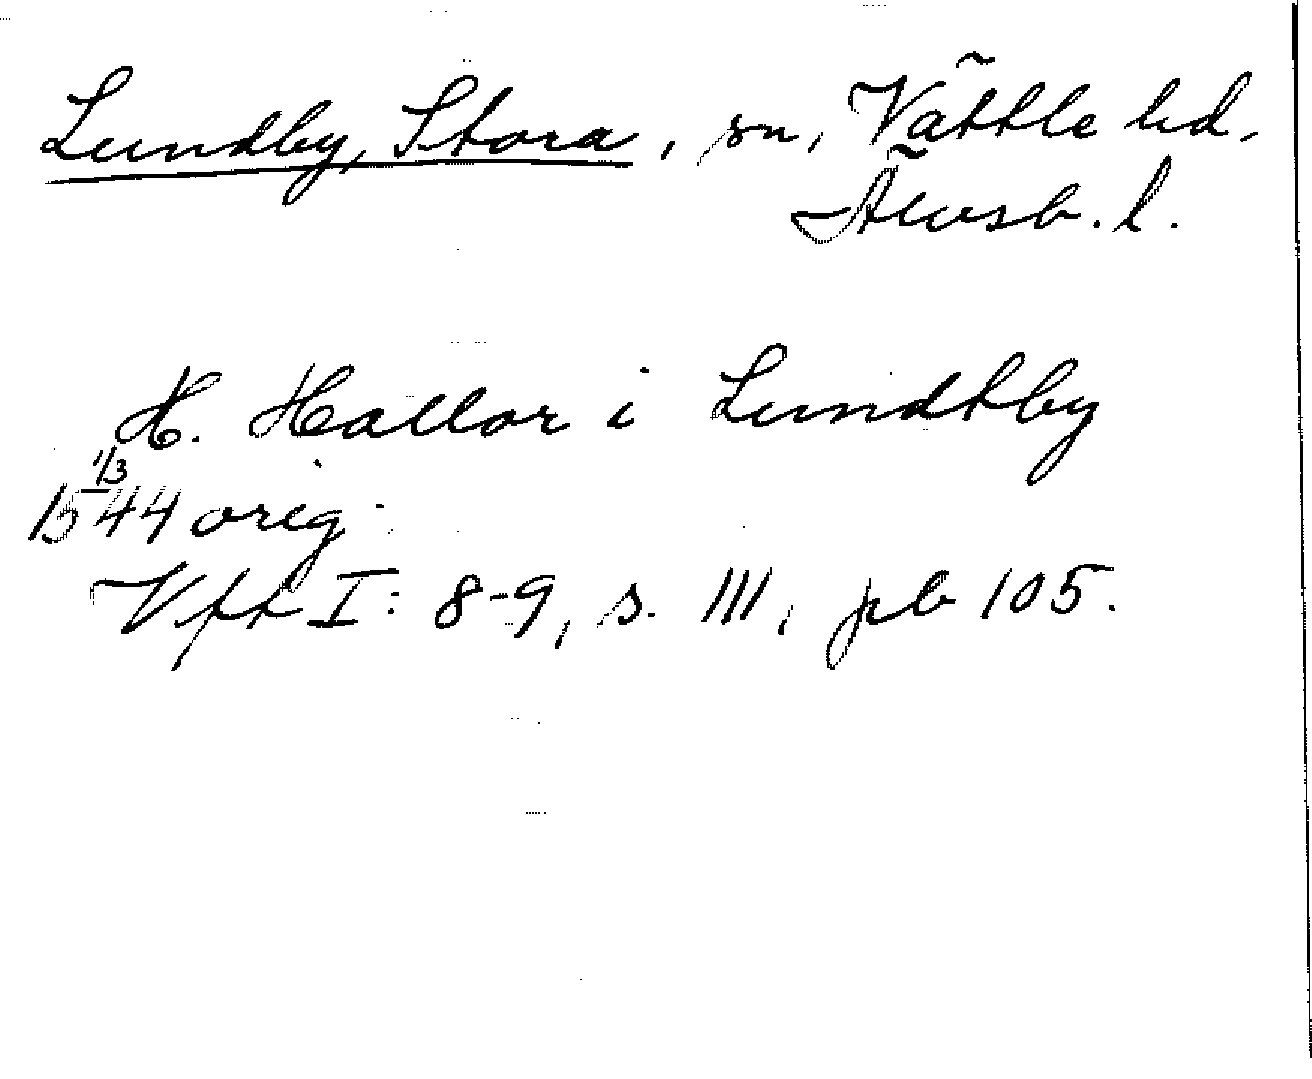 Lundby, Stora, sn, Vättle hd,
Älvsb. l.
H. Hallor i Lundhby
1/3
1544 orig.
Vft I: 8-9, s. 111, pb 105.